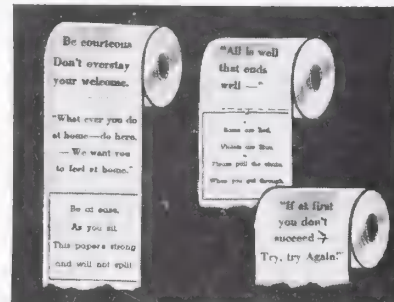 Be courteous
Don't overstay
your welcome.
"What ever you do
at home—do here.
— We want you
to feel at home."
Be at ease,
As you sit
This papers strong
and will not split
"All is well
that ends
well —"
Roses are Red,
Violets are Blue,
Please pull the chain,
When you get through.
"If at first
you don't
succeed →
Try, try Again."